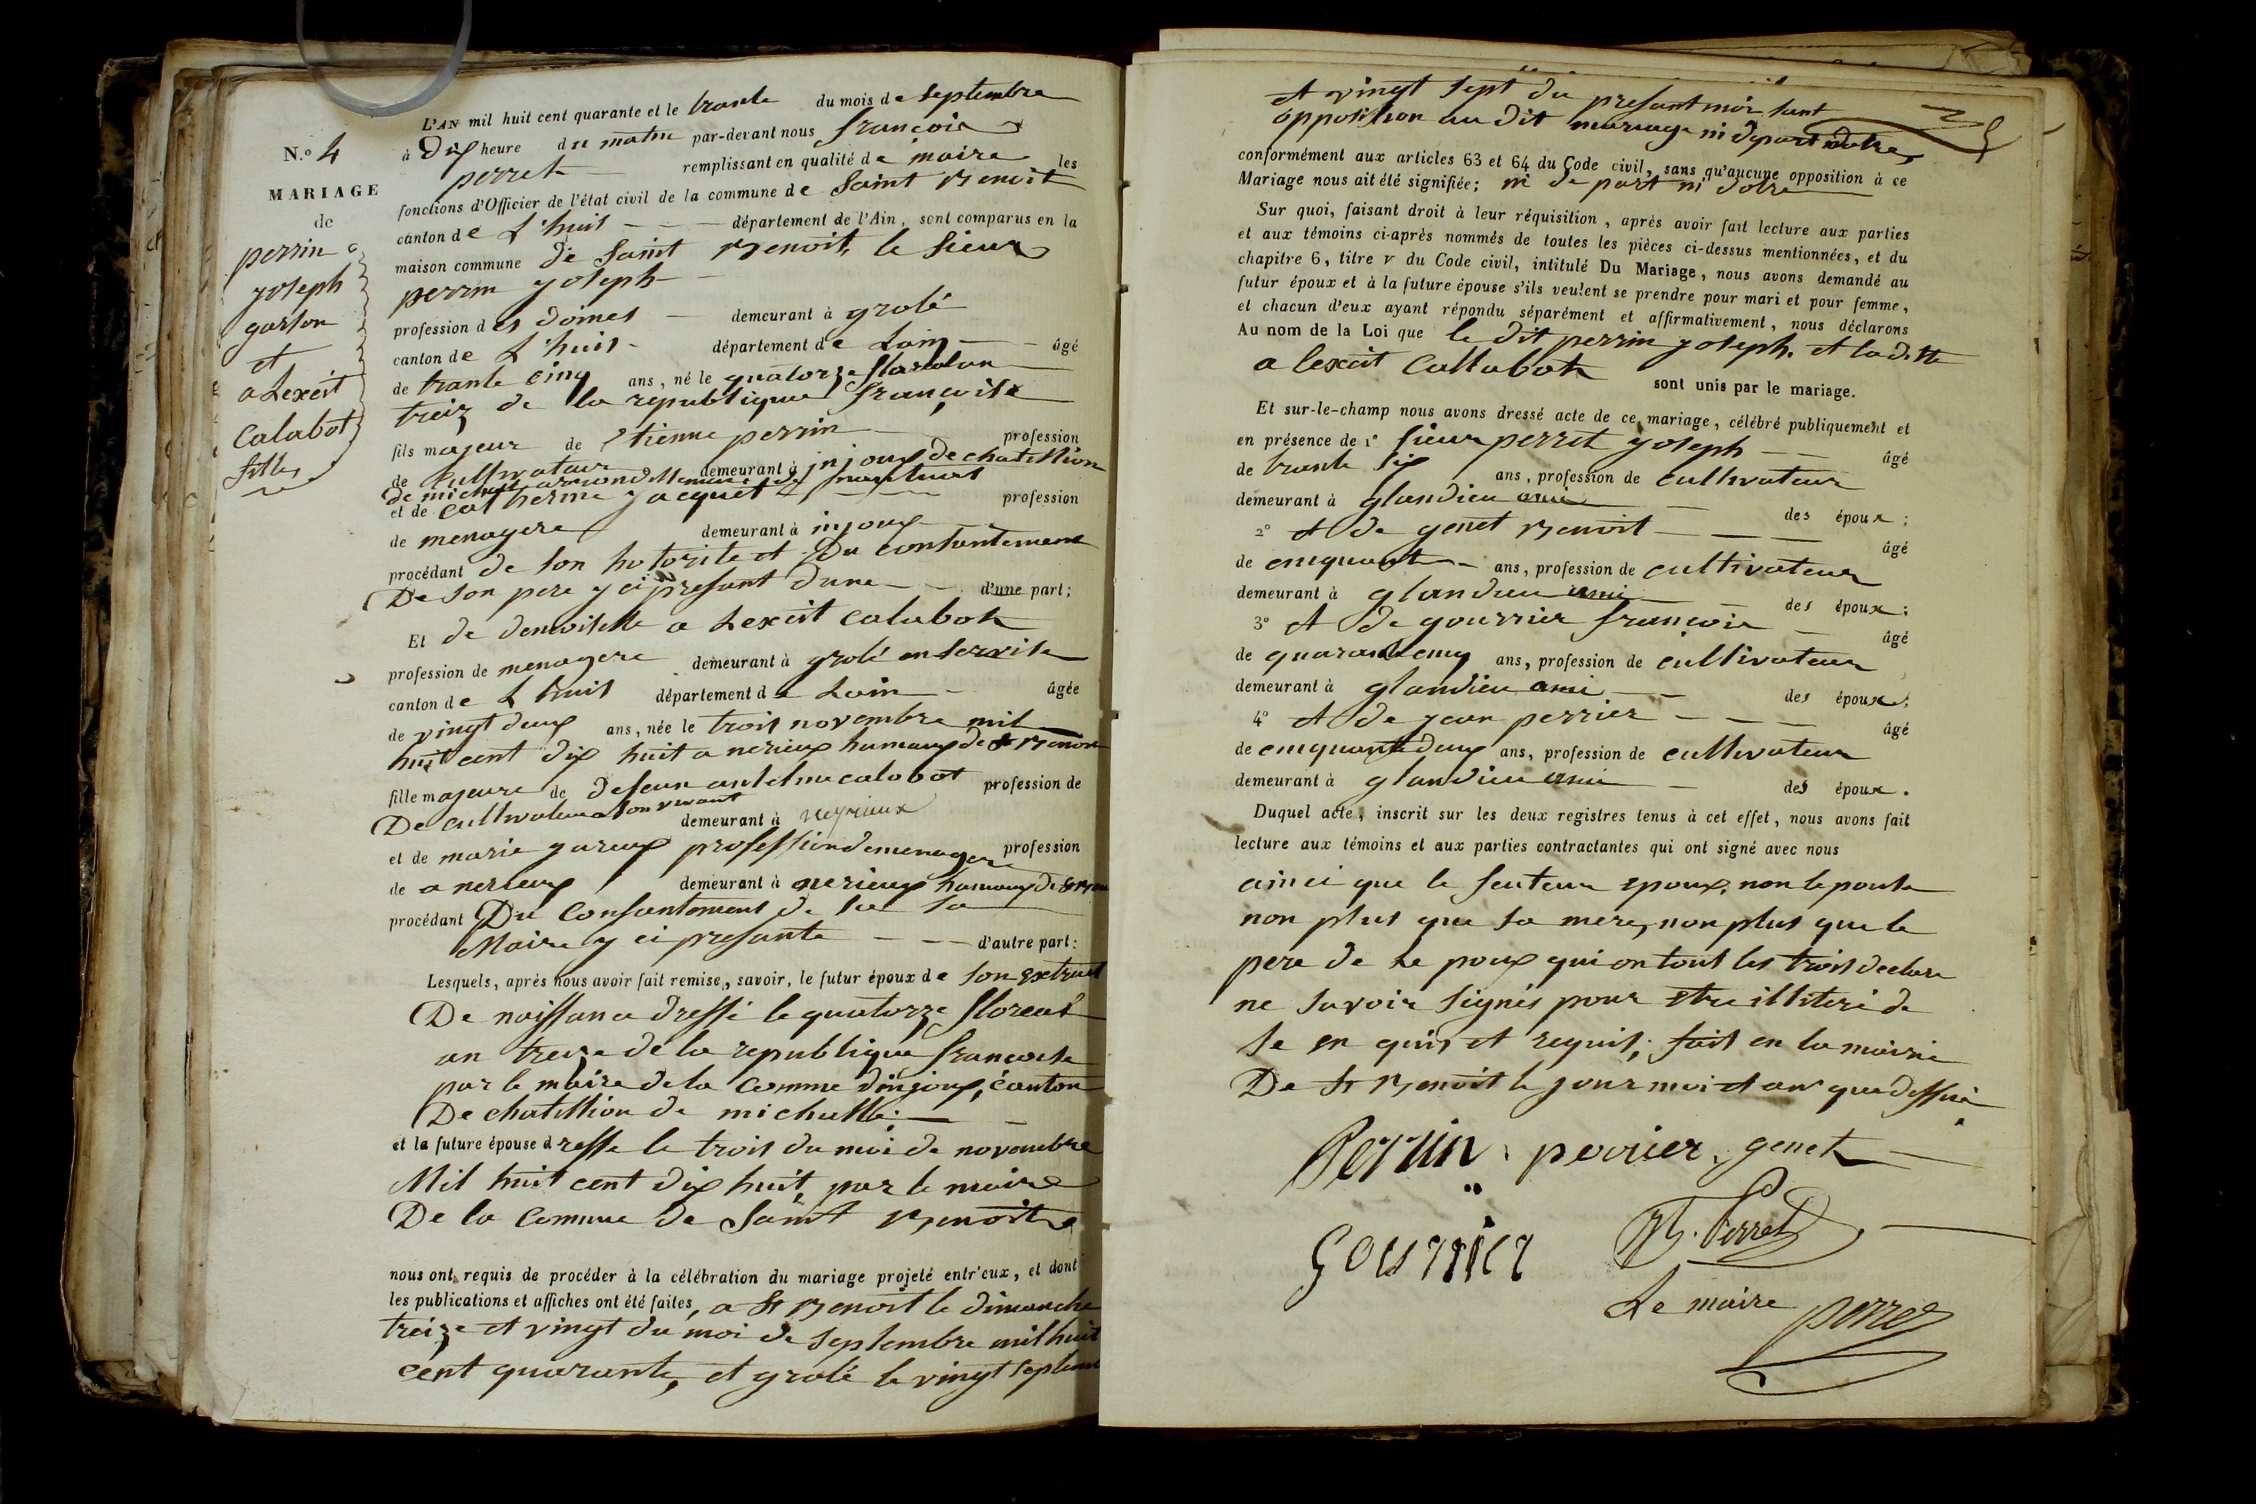 N.º 4
MARIAGE
de
perrin
joseph
garson
et
alexcit
Calabot
fille
L'AN mil huit cent quarante et le trante du mois de septembre
à Dix heure du matin par-devant nous françois
perret remplissant en qualité de maire les
fonctions d'Officier de l'état civil de la commune de Saint Benoit
canton de L'huis département de l'Ain, sont comparus en la
maison commune de Saint Benoit, le Sieur
perrin joseph
profession des domes demeurant à grolé
canton de L'huis département de Lain âgé
de trante cinq ans, né le quatorze
treiz de la republique françoise
fils majeur de Etienne perrin profession
de Cultivateur demeurant à injoux de chatillion
de michail arrondissement de nantuat
et de catherine jacquet profession
de menagere demeurant à injoux
procédant de son hotorite et Du consantement
De son pere y ci presant dune d'une part;
Et de demoiselle alexcit calabot
profession de menagere demeurant à grolé en servise
canton de L'huis département de Lain âgée
de vingt deux ans, née le trois novembre mil
huit cent dix huit a nerieux hamaux de St Benoit
fille majeure de defeun antelme calabot profession de
De cultivateur a son vivant demeurant à neyrieux
et de marie jareux profession de menagere profession
de a nerieux demeurant à nerieux hamaux de St Benoit
procédant Du Consantement de sa
Maire y ci presante d'autre part:
Lesquels, après nous avoir fait remise, savoir, le futur époux de son extrait
De naissance dressé le quatorze floreal
an treize de la republique françoise
par le maire de la comme d'injoux, canton
De chatillion de michaille;
et la future épouse dresse le trois du moi de novembre
Mil huit cent dix huit, par le maire
De la Commue de Saint Benoit
nous ont requis de procéder à la célébration du mariage projeté entr'eux, et dont
les publications et affiches ont été faites, a St Benoit le dimanche
treize et vingt du moi de septembre mil huit
cent quarante, et grolé le vingt septem
et vingt sept du presant moi sant
opposition au dit mariage ni de part ni dotre
conformément aux articles 63 et 64 du Code civil, sans qu'aucune opposition à ce
Mariage nous ait été signifiée; ni de part ni dotre
Sur quoi, faisant droit à leur réquisition, après avoir fait lecture aux parties
et aux témoins ci-après nommés de toutes les pièces ci-dessus mentionnées, et du
chapitre 6, titre v du Code civil, intitulé Du Mariage, nous avons demandé au
futur époux et à la future épouse s'ils veulent se prendre pour mari et pour femme,
et chacun d'eux ayant répondu séparément et affirmativement, nous déclarons
Au nom de la Loi que le dit perrin joseph et la ditte
alexcit Callabot sont unis par le mariage.
Et sur-le-champ nous avons dressé acte de ce mariage, célébré publiquement et
en présence de 1º sieur perret joseph âgé
de trante six ans, profession de cultivateur
demeurant à glandieu ami des époux;
2º et de genet Benoit âgé
de cinquante ans, profession de cultivateur
demeurant à glandieu ami des époux;
3º et de gourrier françois âgé
de quarante cinq ans, profession de cultivateur
demeurant à glandieu ami des époux;
4º et de jean perrier âgé
de cinquante deux ans, profession de cultivateur
demeurant à glandieu ami des époux.
Duquel acte, inscrit sur les deux registres tenus à cet effet, nous avons fait
lecture aux témoins et aux parties contractantes qui ont signé avec nous
ainci que le feuteur epoux, non lepouse
non plus que sa mere, non plus que le
pere de le poux qui on tous les trois declare
ne savoir signés pour etre illiteré de
se en quis et requis; fait en la mairie
De St Benoit le jour moi et an que dessus
Perrin. perrier. genet
Gourrier
Perret
Le maire perret